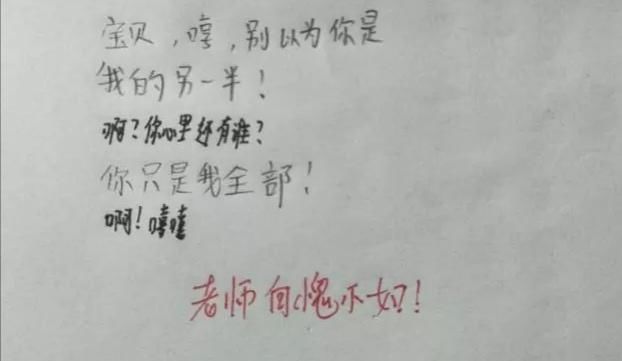 宝贝,嘻,别以为你是
我的另一半!
啊?你心里还有谁?
你只是我全部!
啊!嘻嘻
老师自愧不如!